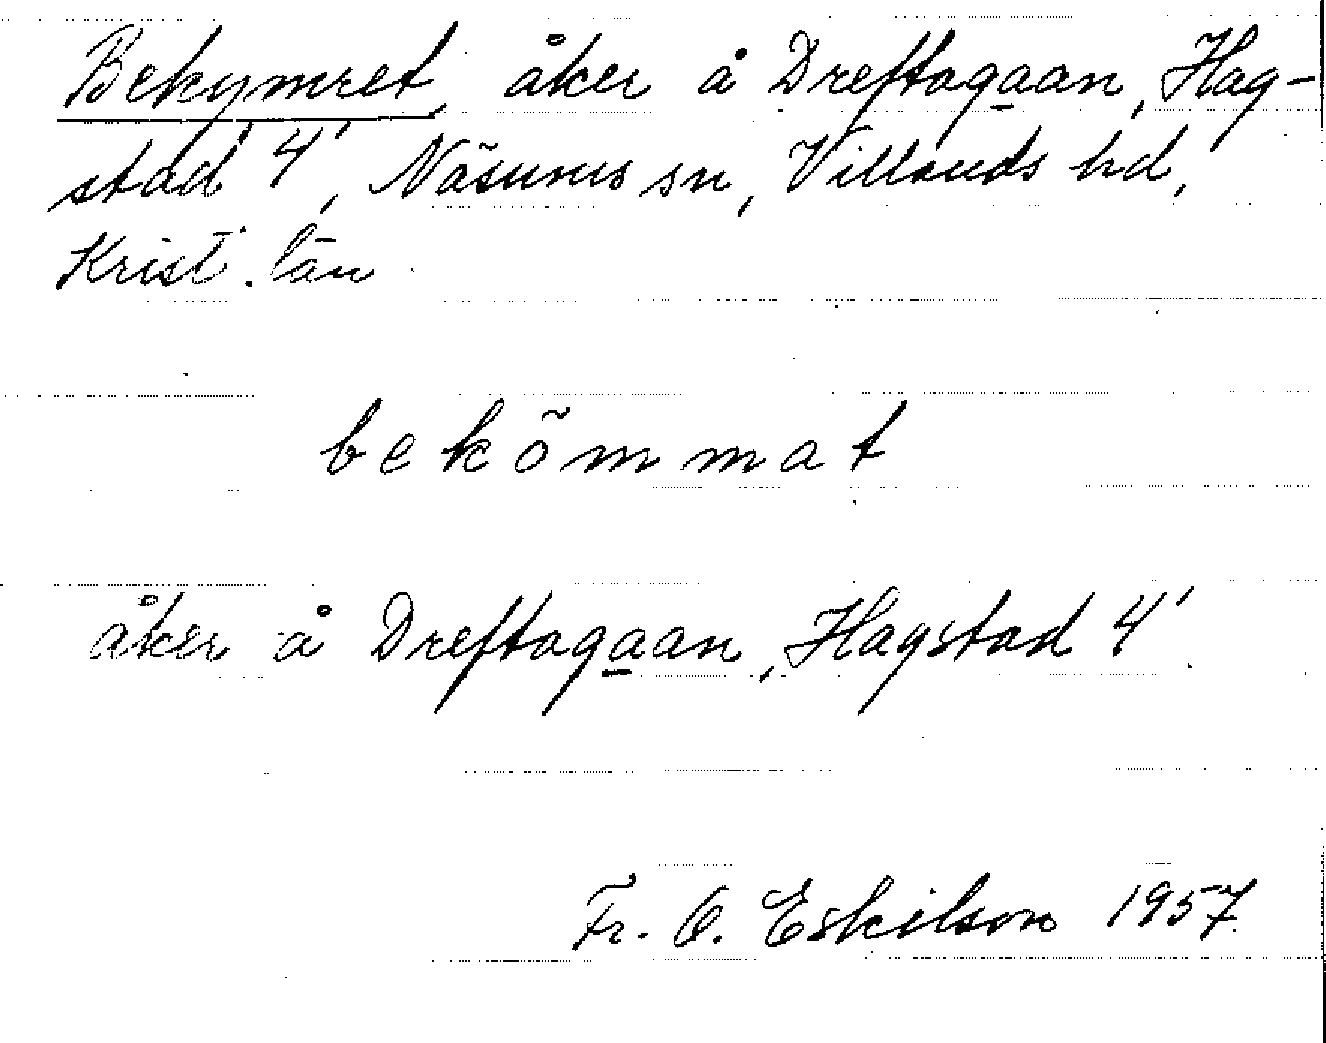 Bekymret, åker å Dreftagaan, Hag-
stad 4', Näsums sn, Villands hd,
Krist. län
bekõmmat
åker å Dreftagaan, Hagstad 4'
Fr. O. Eskilson 1957.